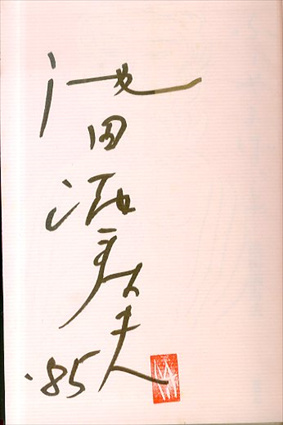 池田満寿夫
'85